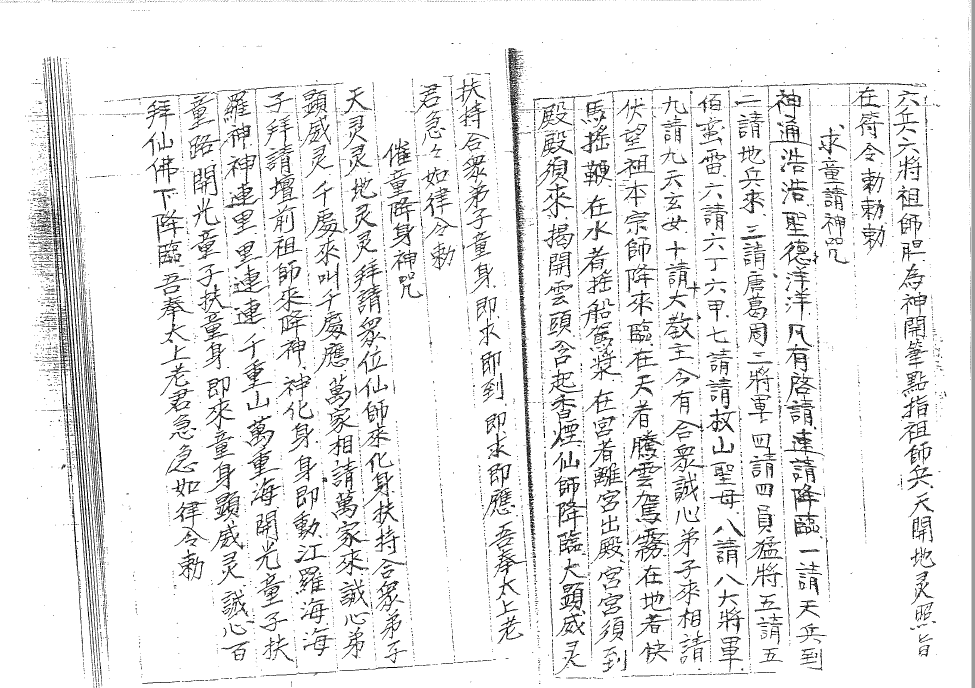 六兵六將祖師胆為神開筆點指祖師兵天開地灵照旨
在符令勅勅勅
求童請神咒
神通浩浩聖德洋洋凡有啓請連請降臨一請天兵到
二請地兵來三請唐葛周三將軍四請四員猛將五請五
伯蛮雷六請六丁六甲七請請敖山聖母八請八大將軍
九請九天玄女十請大教主今有合衆誠心弟子來相請
伏望祖本宗師降來臨在天者騰雲駕霧在地者快
馬搖鞭在水者搖船駕漿在宮者離宮出殿宮宮須到
殿殿須來揭開雲頭含起香煙仙師降臨大顯威灵
扶持合衆弟子童身即求即到即求即應吾奉太上老
君急々如律令勅
催童降身神咒
天灵灵地灵灵拜請衆位仙師來化身扶持合衆弟子
顕威灵千處來叫千處應萬家相請萬家來誠心弟
子拜請壇前祖師來降神神化身身即動江羅海海
羅神神連里里連連千重山萬重海開光童子扶
童路開光童子扶童身即來童身顕威灵誠心百
拜仙佛下降臨吾奉太上老君急急如律令勅